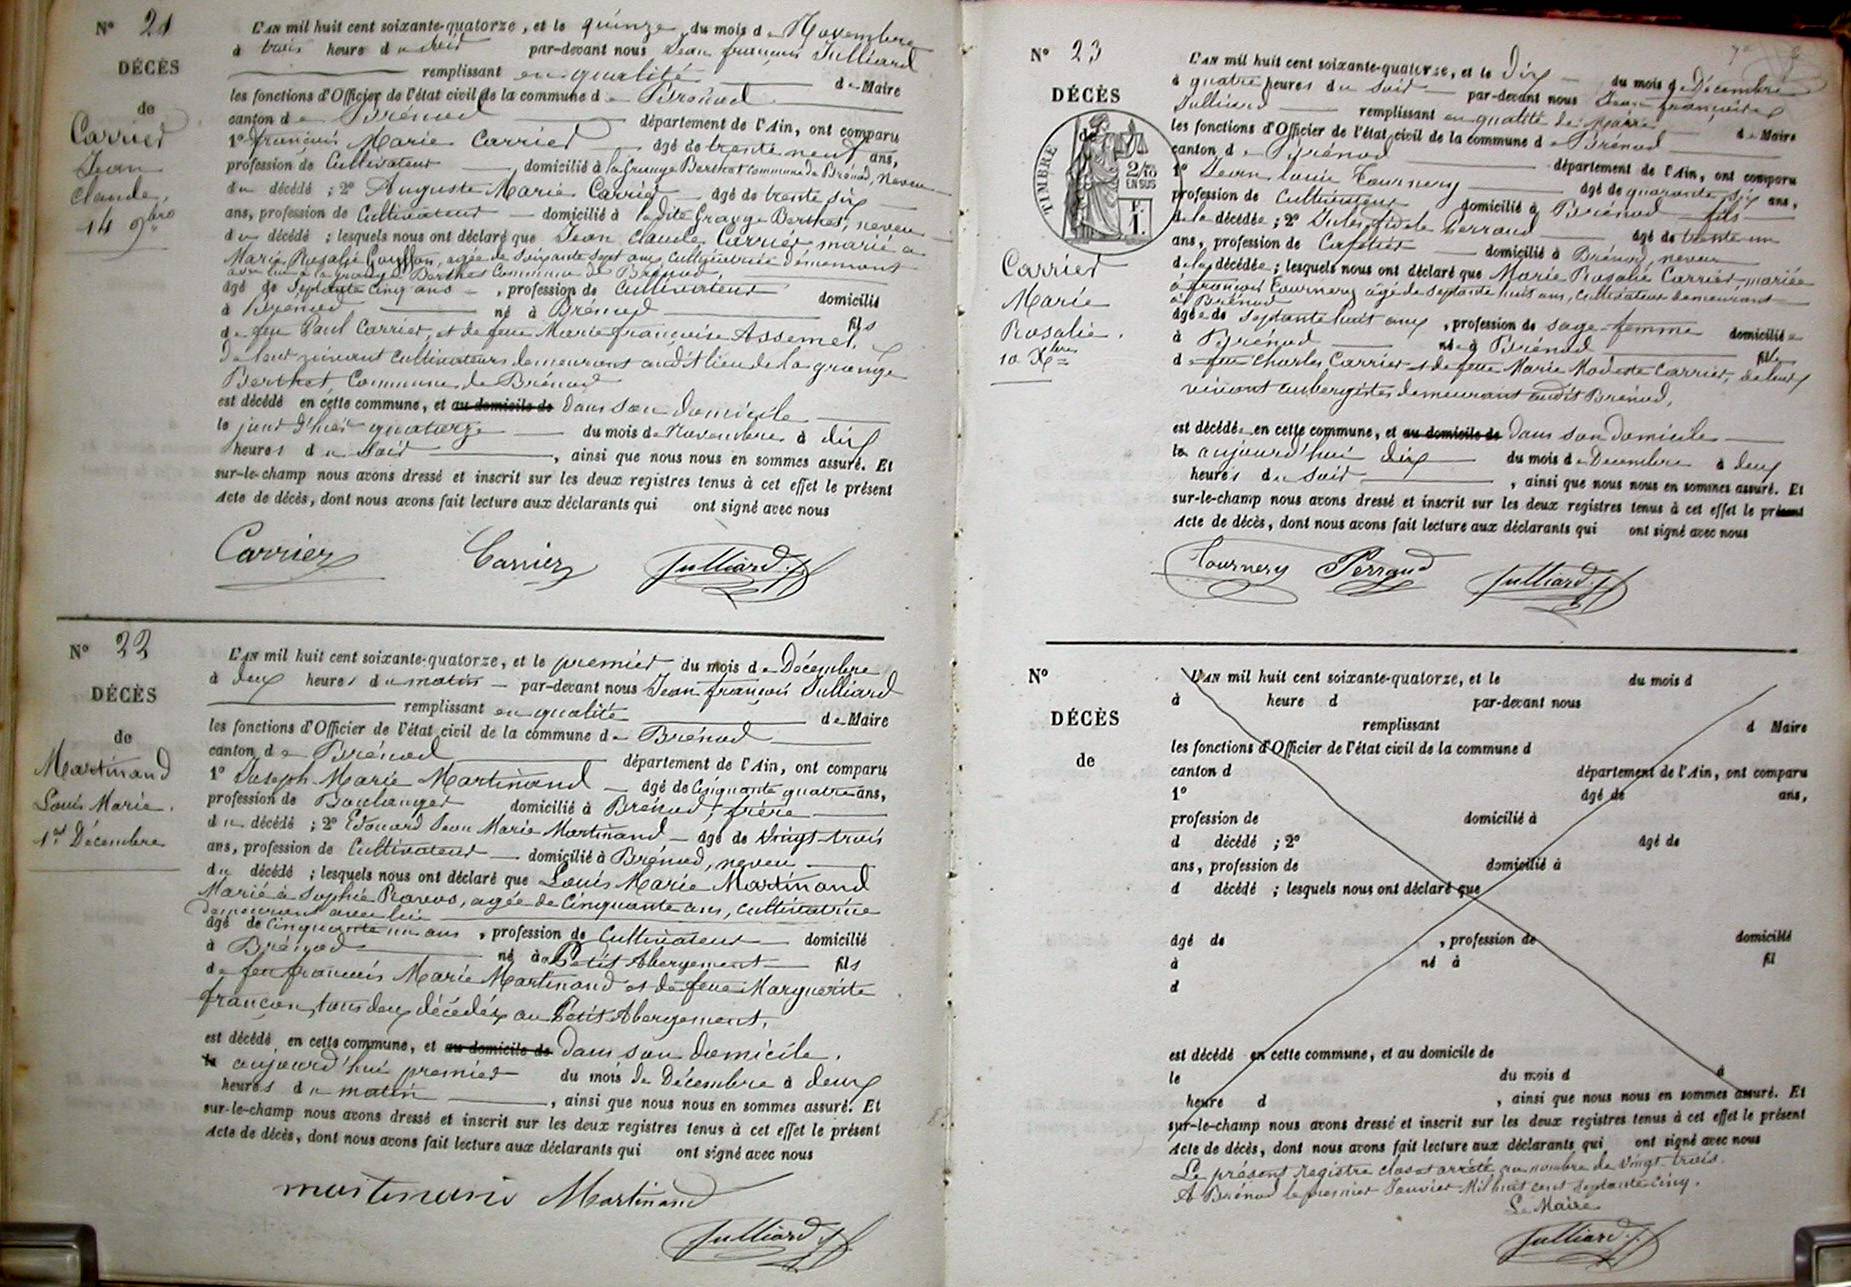 N° 21
DÉCÈS
de
Carrier
Jean
Claude,
14 9bre
L'AN mil huit cent soixante-quatorze, et le quinze du mois de Novembre
à trois heure du soir par-devant nous Jean françois Julliard
remplissant en qualité de Maire
les fonctions d'Officier de l'état civil de la commune de Brénod
canton de Brénod département de l'Ain, ont comparu
1° françois Marie Carrier âgé de trente neuf ans,
profession de Cultivateur domicilié à la Grange Berthet commune de Brénod, neveu
du décédé ; 2° Auguste Marie Carrier âgé de trente six
ans, profession de Cultivateur domicilié à ladite Grange Berthet, neveu
du décédé ; lesquels nous ont déclaré que Jean Claude Carrier marié à
Marie Rosalie Gouffon, agée de soixante sept ans, cultivatrice demeurant
avec lui à la grange Berthet Commune de Brénod,
âgé de septante cinq ans , profession de Cultivateur domicilié
à Brénod né à Brénod fils
de feu Paul Carrier, et de feue Marie françoise Assemet,
de leur vivant Cultivateurs demeurant audit lieu de la grange
Berthet Commune de Brénod
est décédé en cette commune, et au domicile de dans son domicile
le jour d'hier quatorze du mois de Novembre à dix
heures du soir , ainsi que nous nous en sommes assuré. Et
sur-le-champ nous avons dressé et inscrit sur les deux registres tenus à cet effet le présent
Acte de décès, dont nous avons fait lecture aux déclarants qui ont signé avec nous
Carrier Carrier Julliard J.f
N° 22
DÉCÈS
de
Martinand
Louis Marie.
1er Décembre
L'AN mil huit cent soixante-quatorze, et le premier du mois de Décembre
à deux heures du matin par-devant nous Jean françois Julliard
remplissant en qualité de Maire
les fonctions d'Officier de l'état civil de la commune de Brénod
canton de Brénod département de l'Ain, ont comparu
1° Joseph Marie Martinand âgé de Cinquante quatre ans,
profession de Boulanger domicilié à Brénod, frère
du décédé ; 2° Edouard Jean Marie Martinand âgé de vingt-trois
ans, profession de Cultivateur domicilié à Brénod, neveu
du décédé ; lesquels nous ont déclaré que Louis Marie Martinand
Marié à Sophie Ravos, agée de Cinquante ans, cultivatrice
demeurant avec lui
âgé de Cinquante un ans , profession de Cultivateur domicilié
à Brénod né à Petit Abergement fils
de feu françois Marie Martinand et de feue Marguerite
françon, tous deux décédés au Petit Abergement,
est décédé en cette commune, et au domicile de dans son domicile.
le aujourd'hui premier du mois de Décembre à deux
heures du matin , ainsi que nous nous en sommes assuré. Et
sur-le-champ nous avons dressé et inscrit sur les deux registres tenus à cet effet le présent
Acte de décès, dont nous avons fait lecture aux déclarants qui ont signé avec nous
Martinand Martinand
Julliard J.f
N° 23
DÉCÈS
de
TIMBRE
2/10
EN SUS
F.
1.
Carrier
Marie
Rosalie.
10 Xbre
L'AN mil huit cent soixante-quatorze, et le Dix du mois de Décembre
à quatre heures du soir par-devant nous Jean françois
Julliard remplissant en qualité de Maire de Maire
les fonctions d'Officier de l'état civil de la commune de Brénod
canton de Brénod département de l'Ain, ont comparu
1° Jean louis Tournery âgé de quarante six ans,
profession de Cultivateur domicilié à Brénod fils
de la décédée ; 2° Jules fidele Perraud âgé de trente un
ans, profession de Cafetier domicilié à Brénod, neveu
de la décédée ; lesquels nous ont déclaré que Marie Rosalie Carrier mariée
à françois Tournery agé de septante huit ans, Cultivateur demeurant
à Brénod
âgée de septante huit ans , profession de sage-femme domiciliée
à Brénod née à Brénod fille
de feu Charles Carrier et de feue Marie Modeste Carrier, de leur
vivant aubergistes demeurant audit Brénod,
est décédée en cette commune, et au domicile de dans son domicile
le aujourd'hui dix du mois de Décembre à deux
heures du soir , ainsi que nous nous en sommes assuré. Et
sur-le-champ nous avons dressé et inscrit sur les deux registres tenus à cet effet le présent
Acte de décès, dont nous avons fait lecture aux déclarants qui ont signé avec nous
Tournery Perraud Julliard J.f
N°
DÉCÈS
de
L'AN mil huit cent soixante-quatorze, et le du mois d
à heure d par-devant nous
remplissant d Maire
les fonctions d'Officier de l'état civil de la commune d
canton d département de l'Ain, ont comparu
1° âgé de ans,
profession de domicilié à
d décédé ; 2° âgé de
ans, profession de domicilié à
d décédé ; lesquels nous ont déclaré que
âgé de , profession de domicilié
à né à fil
d
est décédé en cette commune, et au domicile de
le du mois d à
heure d , ainsi que nous nous en sommes assuré. Et
sur-le-champ nous avons dressé et inscrit sur les deux registres tenus à cet effet le présent
Acte de décès, dont nous avons fait lecture aux déclarants qui ont signé avec nous
Le présent registre clos et arrêté au nombre de vingt-trois.
A Brénod le premier Janvier Mil huit cent septante cinq.
Le Maire
Julliard J.f